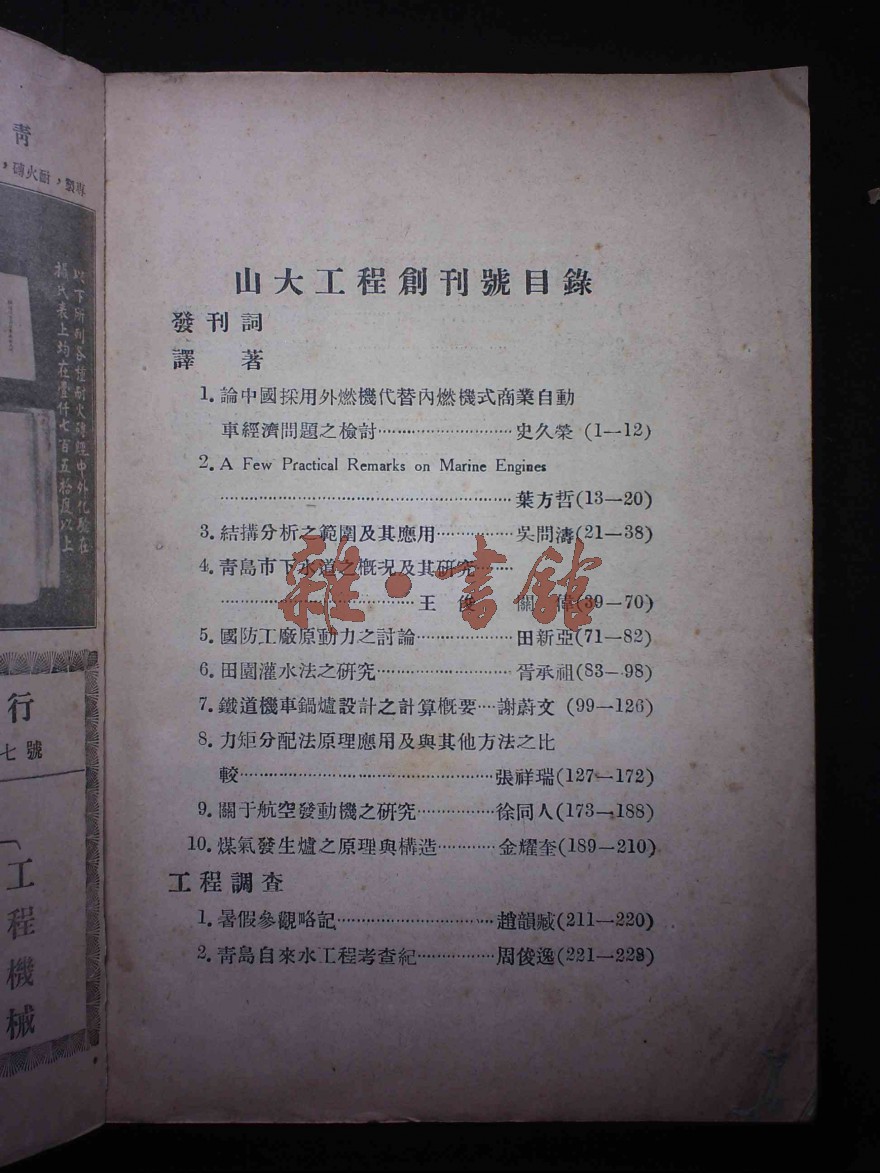 山大工程創刊號目錄
發刊詞
譯 著
1. 論中國採用外燃機代替內燃機式商業自動
車經濟問題之檢討……………………史久榮 (1—12)
2. A Few Practical Remarks on Marine Engines
………………………………………………葉方哲(13—20)
3. 結搆分析之範圍及其應用……………吳問濤(21—38)
4. 青島市下水道之概况及其研究……
………………………………王 俊 關 偉(39—70)
5. 國防工廠原動力之討論………………田新亞(71—82)
6. 田園灌水法之研究……………………胥承祖(83—98)
7. 鐵道機車鍋爐設計之計算概要…謝蔚文 (99—126)
8. 力矩分配法原理應用及與其他方法之比
較…………………………………………張祥瑞(127—172)
9. 關于航空發動機之研究……………徐同人(173—188)
10. 煤氣發生爐之原理與構造…………金耀奎(189—210)
工程調查
1. 暑假參觀略記…………………………趙韻臧(211—220)
2. 青島自來水工程考查紀………………周俊逸(221—228)
雜·書館
青
，磚火耐，製專
以下所列各種耐火磚經中外化驗在
攝氏表上均在壹仟七百五拾度以上
行
七號
工程機械